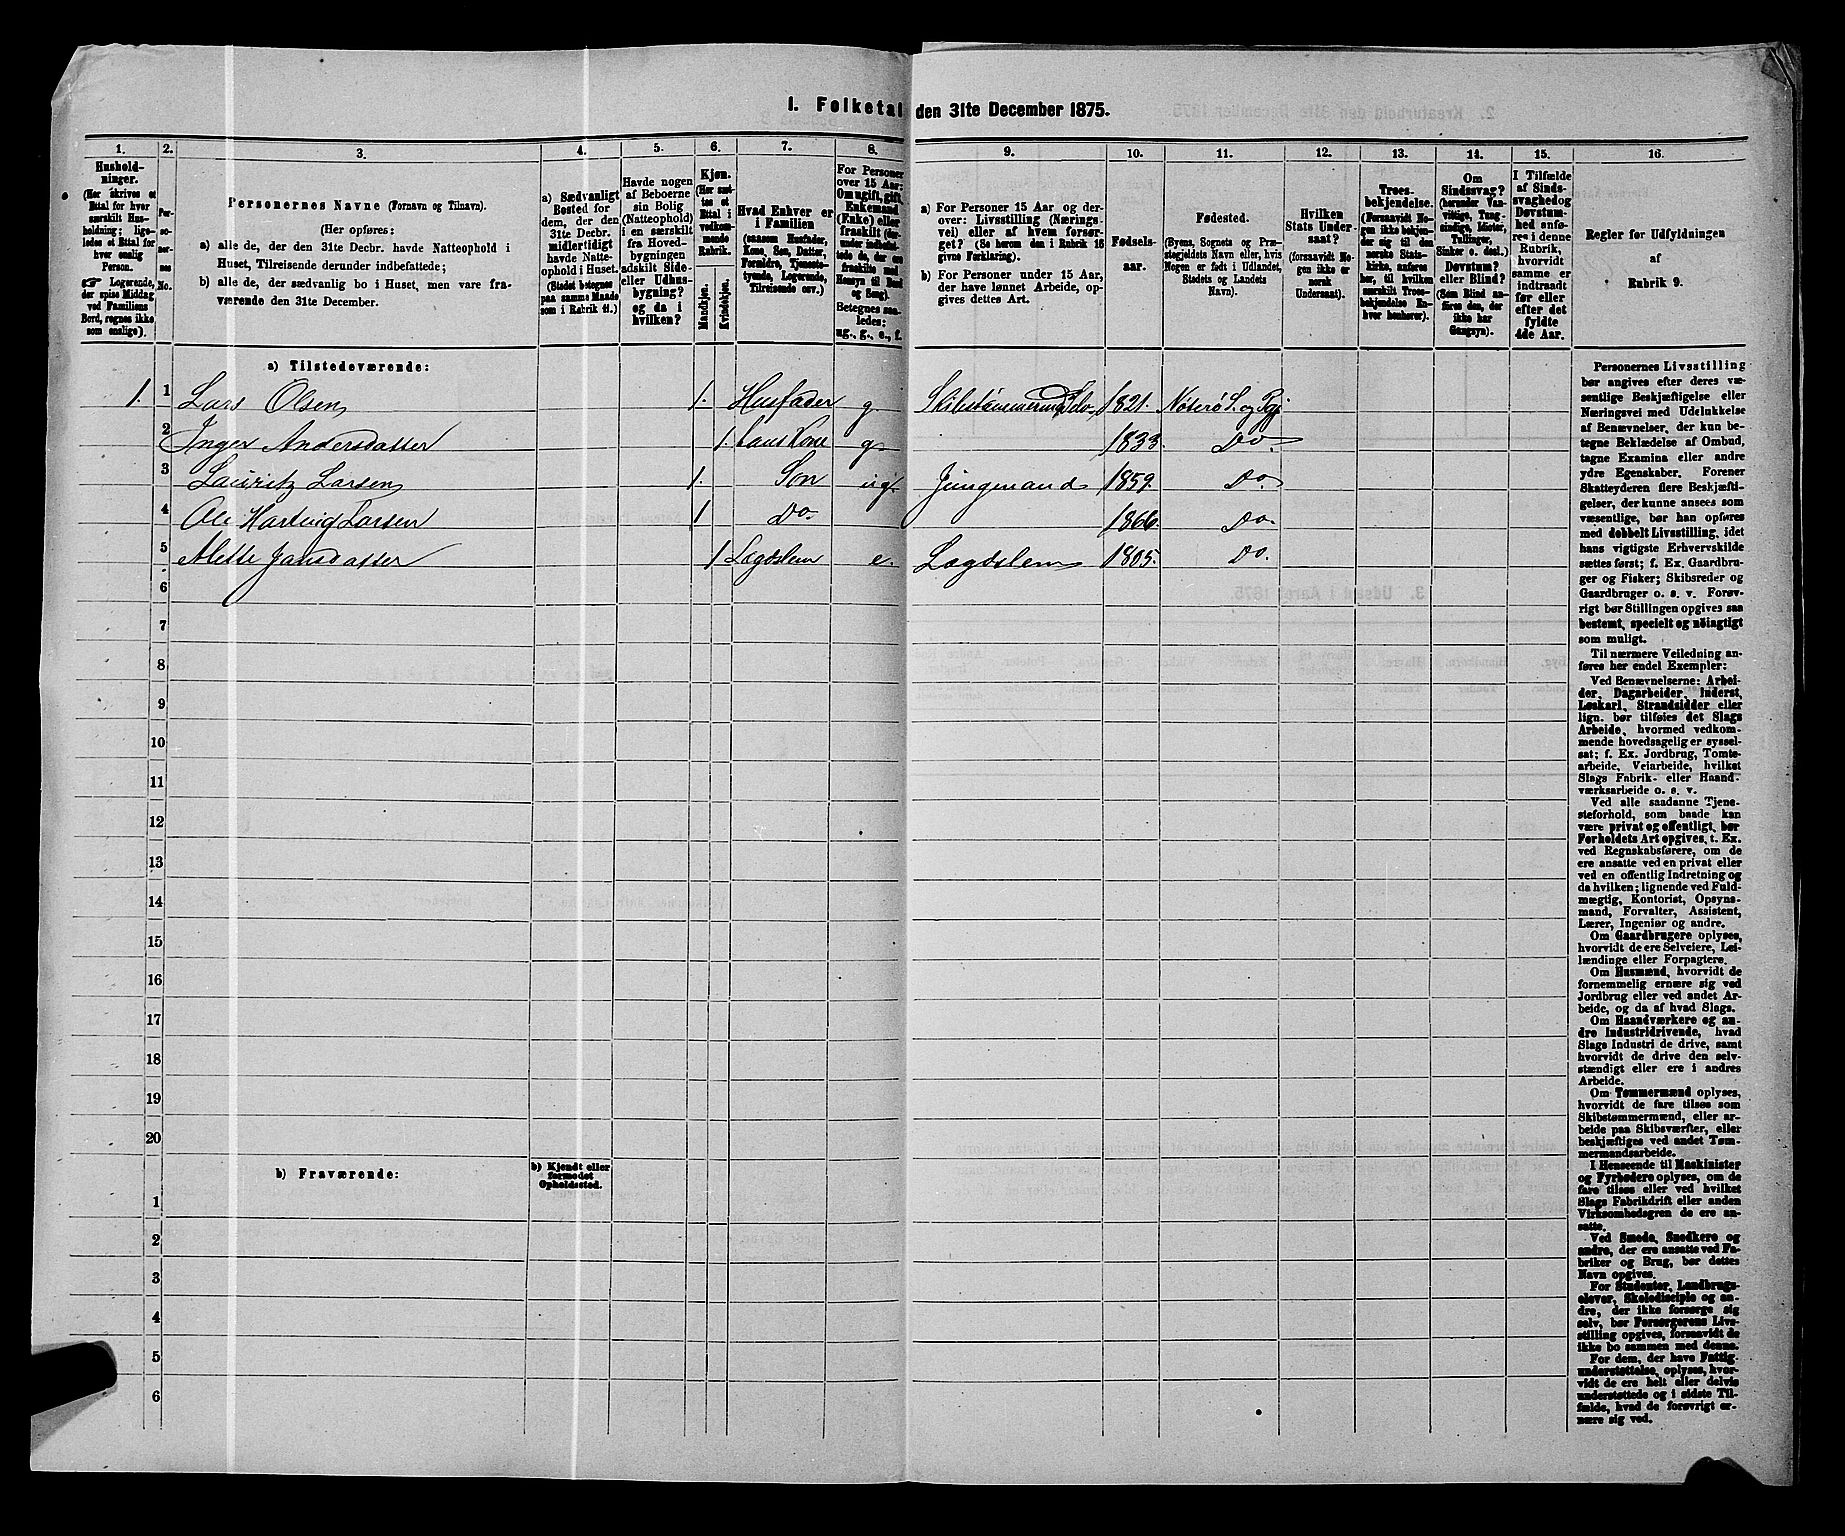 I. Folketal den 31te December 1875.
1.
Hushold-
ninger.
(Her skrives et
Ettal for hver
særskilt Hus-
holdning; lige-
ledes et Ettal for
hver enslig
Person.
☛ Logerende,
der spise Middag
ved Familiens
Bord, regnes ikke
som enslige).
2.
Per-
so-
ner-
nes
No.
3.
Personernes Navne (Fornavn og Tilnavn).
(Her opføres:
a) alle de, der den 31te Decbr. havde Natteophold i
Huset, Tilreisende derunder indbefattede;
b) alle de, der sædvanlig bo i Huset, men vare fra-
værende den 31te December.
4.
a) Sædvanligt
Bosted for
dem, der den
31te Decbr.
midlertidigt
havde Natte-
ophold i Huset.
(Stedet betegnes
paa samme Maade
som i Rubrik 11.)
5.
Havde nogen
af Beboerne
sin Bolig
(Natteophold)
i en særskilt
fra Hoved-
bygningen
adskilt Side-
eller Udhus-
bygning?
og da i
hvilken?
6.
Kjøn.
(Her sæt-
tes et
Ettal i
vedkom-
mende
Rubrik.
Mandkjøn.
Kvindekjøn.
7.
Hvad Enhver er
i Familien
(saasom Husfader,
Kone, Søn, Datter,
Forældre, Tjeneste-
tyende, Logerende,
Tilreisende osv.)
8.
For Personer
over 15 Aar:
Om ugift, gift,
Enkemand
(Enke) eller
fraskilt (der-
under indbefat-
tede de, der ere
fraskilte med
Hensyn til Bord
og Seng).
Betegnes saa-
ledes:
ug., g., e., f.
9.
a) For Personer 15 Aar og der-
over: Livsstilling (Nærings-
vei) eller af hvem forsør-
get? (Se herom den i Rubrik 16
givne Forklaring).
b) For Personer under 15 Aar,
der have lønnet Arbeide, op-
gives dettes Art.
10.
Fødsels-
aar.
11.
Fødested.
(Byens, Sognets og Præ-
stegjeldets Navn eller, hvis
Nogen er født i Udlandet,
Stedets og Landets
Navn).
12.
Hvilken
Stats Under-
saat?
(forsaavidt No-
gen ikke er
norsk
Undersaat).
13.
Troes-
bekjendelse.
(Forsaavidt No-
gen ikke bekjen-
der sig til den
norske Stats-
kirke, anføres
her, til hvilken
særskilt Troes-
bekjendelse En-
hver henhører).
14.
Om
Sindssvag?
(herunder Van-
vittige, Tung-
sindige, Idioter,
Tullinger,
Sinker o. desl.)
Døvstum?
eller Blind?
(Som Blind an-
føres den, der
ikke har
Gangsyn).
15.
I Tilfælde
af Sinds-
svaghed og
Døvstum-
hed anfø-
res i denne
Rubrik,
hvorvidt
samme er
indtraadt
før eller
efter det
fyldte
4de Aar.
16.
Regler for Udfyldningen
af
Rubrik 9.
a) Tilstedeværende:
1. 1 Lars Olsen 1. Husfader g. Skibstømmermand Selv 1821. Nøterø S. og Pgj
2 Inger Andersdatter 1. hans Kone g 1833. Do
3 Lauritz Larsen 1. Søn ug. Jungmand 1859. Do.
4 Ole Hartvig Larsen 1 Do. 1866. Do.
5 Mette Jansdatter 1 Lægdslem e. Lægdslem 1805. Do.
6
7
8
9
10
11
12
13
14
15
16
17
18
19
20
b) Fraværende:
b) Kjendt eller
formodet
Opholdssted.
1
2
3
4
5
6
Personernes Livsstilling
bør angives efter deres væ-
sentlige Beskjæftigelse eller
Næringsvei med Udelukkelse
af Benævnelser, der kun be-
tegne Beklædelse af Ombud,
tagne Examina eller andre
ydre Egenskaber. Forener
Skatteyderen flere Beskjæfti-
gelser, der kunne ansees som
væsentlige, bør han opføres
med dobbelt Livsstilling, idet
hans vigtigste Erhvervskilde
sættes først; f. Ex. Gaardbru-
ger og Fisker; Skibsreder og
Gaardbruger o. s. v. Forøv-
rigt bør Stillingen opgives saa
bestemt, specielt og nöiagtigt
som muligt.
Til nærmere Veiledning an-
føres her endel Exempler:
Ved Benævnelserne: Arbei-
der, Dagarbeider, Inderst,
Løskarl, Strandsidder eller
lign. bør tilføies det Slags
Arbeide, hvormed vedkom-
mende hovedsagelig er syssel-
sat; f. Ex. Jordbrug, Tomte-
arbeide, Veiarbeide, hvilket
Slags Fabrik- eller Haand-
værksarbeide o. s. v.
Ved alle saadanne Tjene-
steforhold, som baade kan
være privat og offentligt, bør
Forholdets Art opgives, t. Ex.
ved Regnskabsførere, om de
ere ansatte ved en privat eller
ved en offentlig Indretning og
da hvilken; lignende ved Fuld-
mægtig, Kontorist, Opsyns-
mand, Forvalter, Assistent,
Lærer, Ingeniør og andre.
Om Gaardbrugere oplyses,
hvorvidt de ere Selveiere, Lei-
lændinge eller Forpagtere.
Om Husmænd, hvorvidt de
fornemmelig ernære sig ved
Jordbrug eller ved andet Ar-
beide, og da af hvad Slags.
Om Haandværkere og an-
dre Industridrivende, hvad
Slags Industri de drive, samt
hvorvidt de drive den selv-
stændigt eller ere i andres
Arbeide.
Om Tømmermænd oplyses,
hvorvidt de fare tilsøs som
Skibstømmermænd, eller ar-
beide paa Skibsværfter, eller
beskjæftiges ved andet Tøm-
mermandsarbeide.
I Henseende til Maskinister
og Fyrbødere oplyses, om de
fare tilsøs eller ved hvilket
Slags Fabrikdrift eller anden
Virksomhedsgren de ere an-
satte.
Ved Smede, Snedkere og
andre, der ere ansatte ved Fa-
briker og Brug, bør dettes
Navn opgives.
For Studenter, Landbrugs-
elever, Skoledisciple og an-
dre, der ikke forsørge sig
selv, bør Forsørgerens Livs-
stilling opgives, forsaavidt de
ikke bo sammen med denne.
For dem, der have Fattig-
understøttelse, oplyses, hvor-
vidt de ere helt eller delvis
understøttede og i sidste Til-
fælde, hvad de forøvrigt er-
nære sig ved.